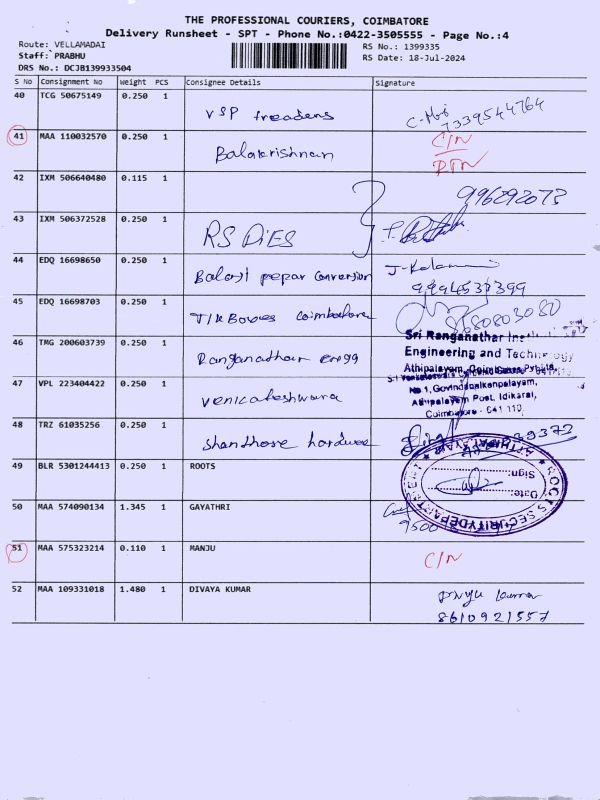 THE PROFESSIONAL COURIERS, COIMBATORE
Delivery Runsheet - SPT - Phone No.:0422-3505555 - Page No.:4
Route: VELLAMADAI
Staff: PRABHU
DRS No.: DCJB139933504
RS No.: 1399335
RS Date: 18-Jul-2024
S No Consignment No Weight PCS Consignee Details Signature
40 TCG 50675149 0.250 1 VSP treaders
7339544764
41 MAA 110032570 0.250 1 Balakrishnan C/N
RTN
42 IXM 506640480 0.115 1 996292073
43 IXM 506372528 0.250 1 RS DiES
44 EDQ 16698650 0.250 1 Balaji pepar conversion
9994537399
45 EDQ 16698703 0.250 1 Coimbatore 8680803080
46 TMG 200603739 0.250 1 Ranganathar engg
Sri Ranganathar
Engineering and Technology
Athipalayam, Coimbatore
47 VPL 223404422 0.250 1 venkateshwara
No 1, Govindanaikenpalayam,
Athipalayam Post, Idikarai,
Coimbatore - 641 110.
48 TRZ 61035256 0.250 1 hardware
49 BLR 5301244413 0.250 1 ROOTS
SECURITY DEPARTMENT
ATHIPALAYAM
Sign:
Date:
50 MAA 574090134 1.345 1 GAYATHRI
9500
51 MAA 575323214 0.110 1 MANJU C/N
52 MAA 109331018 1.480 1 DIVAYA KUMAR
8610921557